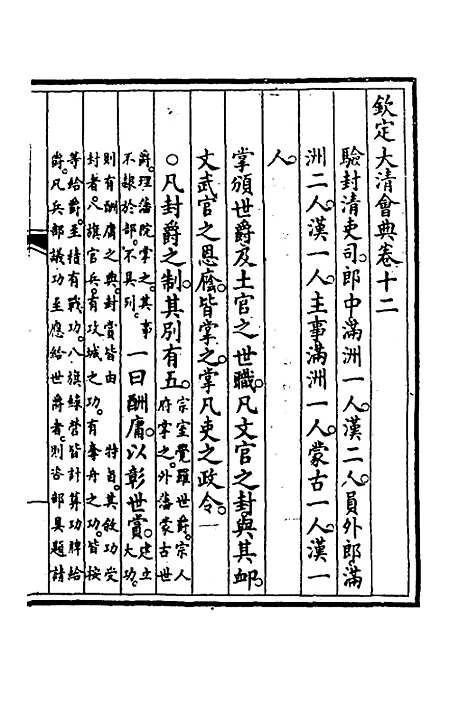 欽定大清會典卷十二
驗封清吏司。郎中滿洲一人。漢二人。員外郎滿
洲二人。漢一人。主事滿洲一人。蒙古一人。漢一
人。
掌頒世爵及土官之世職。凡文官之封與其卹。
文武官之恩廕皆掌之。掌凡吏之政令。
○凡封爵之制。其別有五。宗室覺羅世爵。宗人
府掌之。外藩蒙古世
爵。理藩院掌之。其事
不隸於部。不具列。一曰酬庸。以彰世賞。建立
大功。
則有酬庸之典。封賞皆由
特旨。其敘功受
封者。八旗官兵。有攻城之功。有奪舟之功。皆按
等給爵。至指有戰功。八旗綠營皆計算功牌給
爵。凡兵部議功至應給世爵者。則咨部具題請